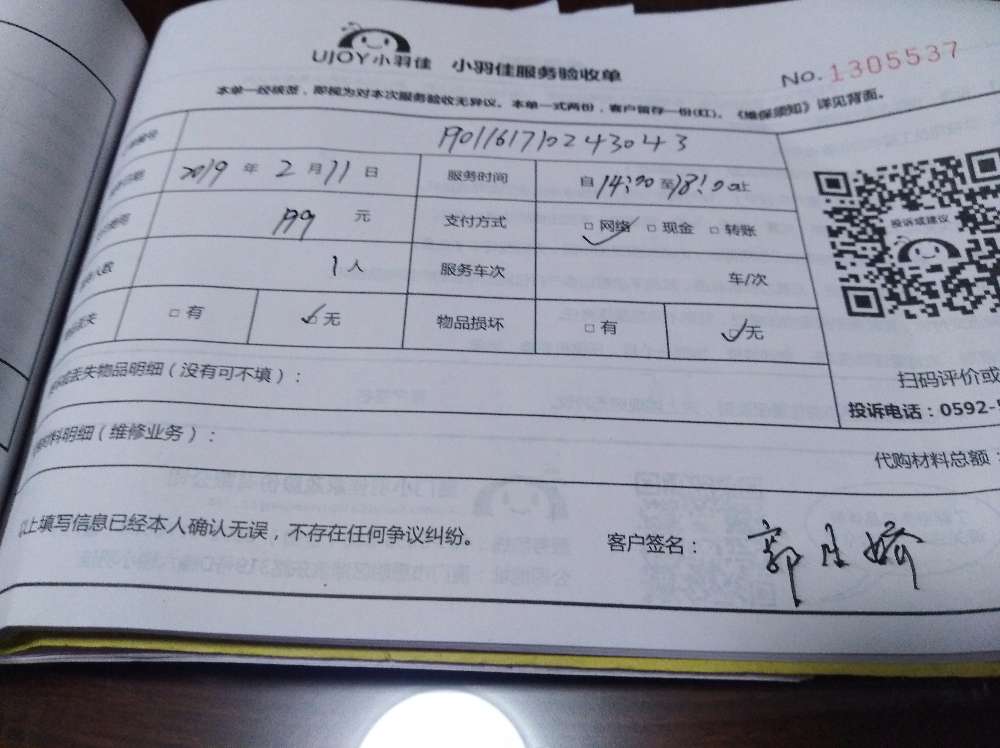 UJOY小羽佳 小羽佳服务验收单
No. 1305537
本单一经核签，即视为对本次服务验收无异议。本单一式两份，客户留存一份(红)。《维保须知》详见背面。
编号 1901161710243043
2019 年 2 月 11 日 服务时间 自 14:00 至 18:00 止
199 元 支付方式 □ 网络 □ 现金 □ 转账
人数 1 人 服务车次 车/次
丢失 □ 有 □ 无 物品损坏 □ 有 □ 无
投诉或建议
丢失物品明细（没有可不填）：
扫码评价或
投诉电话：0592-
料明细（维修业务）：
代购材料总额：
以上填写信息已经本人确认无误，不存在任何争议纠纷。
客户签名： 郭